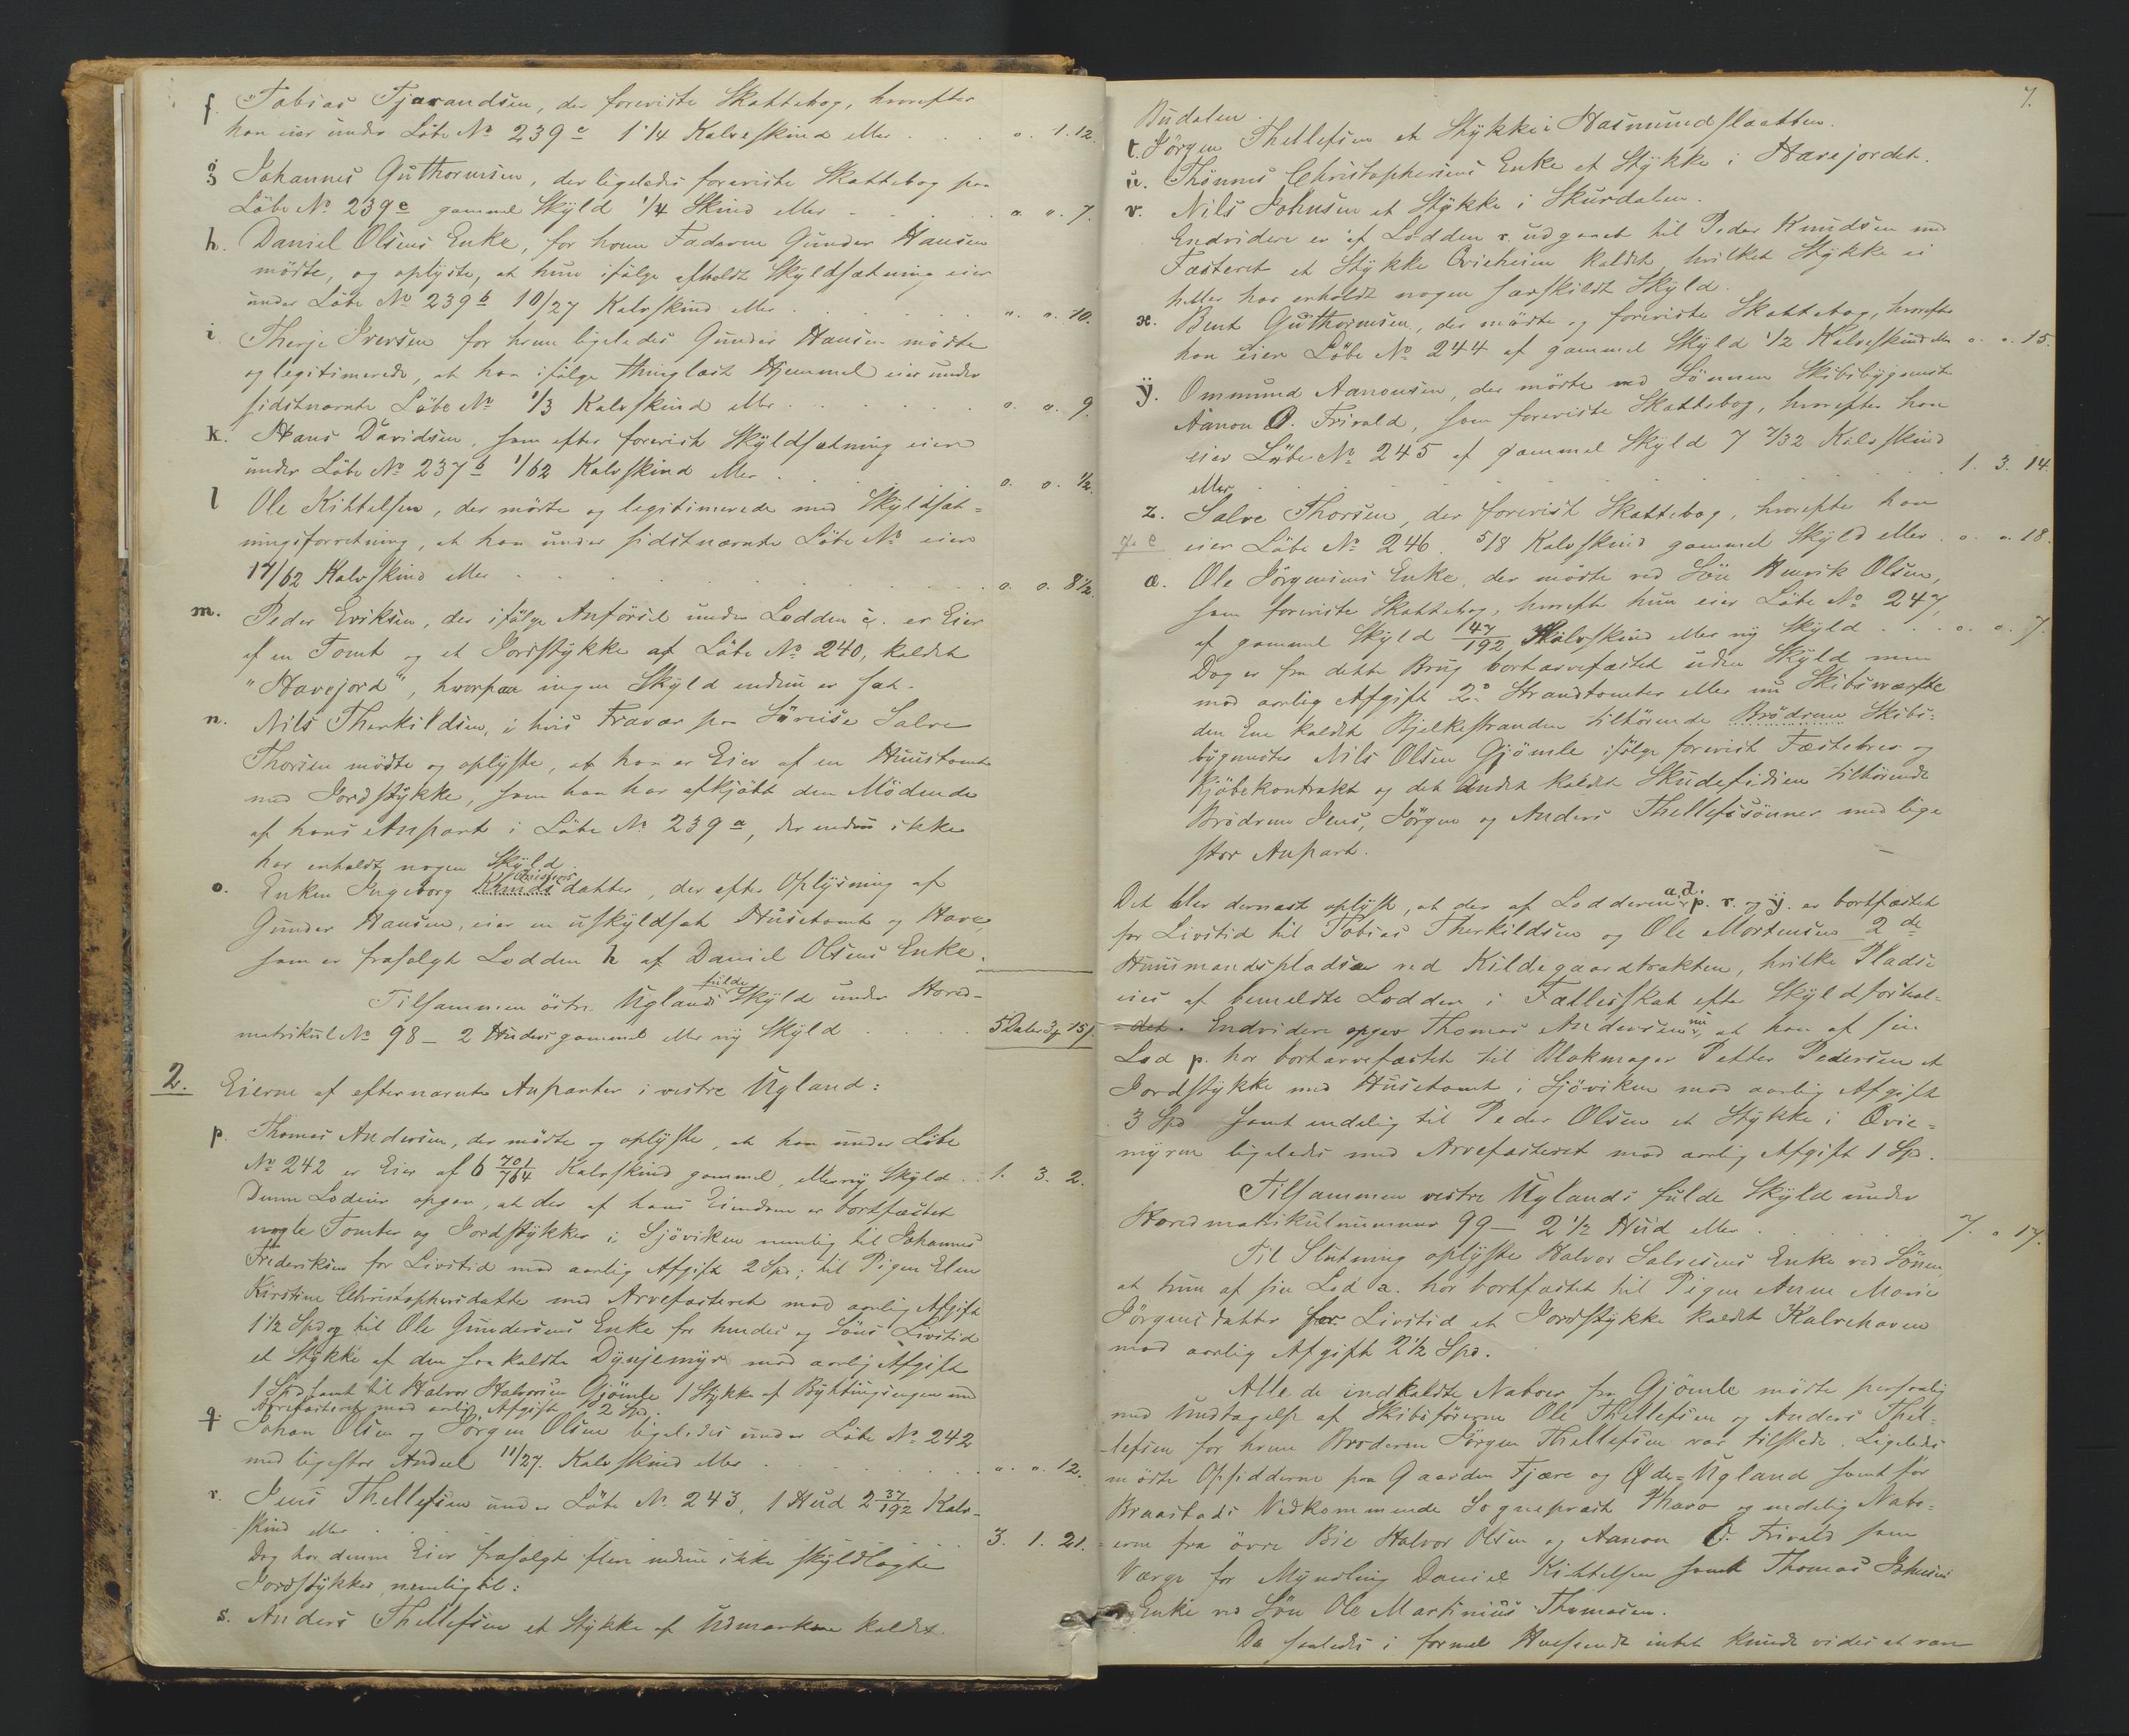 f. Tobias Tjarandsen, der foreviste Skattebog, hvorefter
han eier under Løbe No 239 c 1 1/4 Kalveskind eller . . . o. 1. 12.
g Johannes Guthormsen, der ligeledes foreviste Skattebog paa
Løbe No 239 e gammel Skyld 1/4 Skind eller . . . . o. o. 7.
h. Daniel Olsens Enke, for hvem Faderen Gunder Hansen
mødte, og oplyste, at hun ifølge afholdt Skyldsætning eier
under Løbe No 239 b 10/27 Kalvskind eller . . . . . o. o. 10.
i. Therje Iversen for hvem ligeledes Gunder Hansen mødte
og legitimerede, at han ifølge thinglæst Hjemmel eier under
sidstnævnte Løbe No 1/3 Kalvskind eller . . . . . . o. o. 9.
k. Hans Davidsen, som efter forevist Skyldsætning eier
under Løbe No 237 b 1/62 Kalvskind eller . . . . . o. o. 1/2.
l Ole Kittelsen, der mødte og legitimerede med Skyldsæt=
ningsforretning, at han under sidstnævnte Løbe No eier
17/62 Kalvskind eller . . . . . . . . o. o. 8 1/2.
m. Peder Eriksen, der ifølge Anførsel under Lodden c. er Eier
af en Tomt og et Jordstykke af Løbe No 240, kaldet
"Havejord", hvorpaa ingen Skyld endnu er sat.
n. Nils Therkildsen, i hvis Fravær Salve
Thorsen mødte og oplyste, at han er Eier af en Huustomt
med Jordstykke, som han har afkjøbt den Mødende
af hans Anpart i Løbe No 239 a, der endnu ikke
har erholdt nogen Skyld.
o. Enken Ingeborg Knudsdatter, der efter Oplysning af
Gunder Hansen, eier en uskyldsat Husetomt og Have,
som er frasolgt Lodden h af Daniel Olsens Enke.
Tilsammen østre Uglands fulde Skyld under Hoved-
matrikul No 98 - 2 Huders gammel eller ny Skyld . . . . 5 Daler 3 15.
2. Eierne af efternævnte Anparter i vestre Ugland:
p. Thomas Andersen, der mødte og oplyste, at han under Løbe
No 242 er Eier af 6 701/764 Kalvskind gammel, eller ny Skyld . . 1. 3. 2.
Denne Lodeier opgav, at der af hans Eiendom er bortfæstet
nogle Tomter og Jordstykker i Sjøviken nemlig til Johannes
Frederiksen for Livstid mod aarlig Afgift 2 Spd; til Pigen Elen
Kirstine Christophersdatter med Arvefæsteret mod aarlig Afgift
1 1/2 Spd og til Ole Gundersens Enke for hendes og Søns Livstid
et Stykke af den saa kaldte Dynjemyr mod aarlig Afgift
1 Spd samt til Halvor Halvorsen Gjømle 1 Stykke af med
Arvefæsteret mod aarlig Afgift 2 Spd.
q. Johan Olsen og Jørgen Olsen ligeledes under Løbe No 242
med ligestor Andeel 11/27. Kalvskind eller . . . . . . o. o. 12.
r. Jens Thellefsen under Løbe No 243, 1 Hud 2 37/192 Kalv-
skind eller . . . . . . . . . . 3. 1. 21.
Dog har denne Eier frasolgt flere endnu ikke skyldlagte
Jordstykker, nemlig til:
s. Anders Thellefsen et Stykke af Udmarken kaldet
7.
Budalen.
t. Jørgen Thellefsen et Stykke i Hasmundslaatten.
u. Thønnes Christophersens Enke et Stykke i Havejordet.
v. Nils Johnsen et Stykke i Skurdalen.
Endvidere er af Lodden r. udgaaet til Peder Knudsen med
Fæsteret et Stykke Qvieheien kaldet, hvilket Stykke ei
heller har erholdt nogen særskildt Skyld.
x. Bent Guthormsen, der mødte og foreviste Skattebog, hvorefter
han eier Løbe No 244 af gammel Skyld 1/2 Kalveskind eller o. o. 15.
y. Ommund Aanonsen, der mødte ved Sønnen Skibsbygmester
Aanon O. Frivold, som foreviste Skattebog, hvorefter han
eier Løbe No 245 af gammel Skyld 7 7/32 Kalvskind
eller . . . . . . . . . . 1. 3. 14.
z. Salve Thorsen, der forevist Skattebog, hvorefter han
eier Løbe No 246. 5/8 Kalvskind gammel Skyld eller . o. o. 18.
æ. Ole Jørgensens Enke, der mødte ved Søn Henrik Olsen,
som foreviste Skattebog, hvorefter hun eier Løbe No 247,
af gammel Skyld 47/192 Kalvskind eller ny Skyld . . . o. o. 7.
Dog er fra dette Brug bortarvefæstet uden Skyld men
mod aarlig Afgift 2de Strandtomter eller nu Skibsværfte
den Ene kaldet Bjelkestranden tilhørende Brødrene Skibs=
bygmester Nils Olsen Gjømle ifølge forevist Fæstebrev og
Kjøbekontrakt og det Andet kaldet Skudesidien tilhørende
Brødrene Jens, Jørgen og Anders Thellefssønner med lige
stor Anpart.
Det blev dernæst oplyst, at der af Lodderne a. d. p. r. og y. er bortfæstet
for Livstid til Tobias Therkildsen og Ole Mortensen 2de
Huusmandspladse ved Kildegaardtrakten, hvilke Pladse
eies af bemeldte Lodder i Fællesskab efter Skyldforhol=
=det. Endvidere opgav Thomas Andersen nu, at han af sin
Lod p. har bortarvefæstet til Blokmager Petter Pedersen et
Jordstykke med Husetomt i Sjøviken mod aarlig Afgift
3 Spd samt endelig til Peder Olsen et Stykke i Qvie=
myren ligeledes med Arvefæsteret mod aarlig Afgift 1 Spd.
Tilsammen vestre Uglands fulde Skyld under
Hovedmatrikulnummer 99 - 2 1/2 Hud eller . . . . . 7. o 17.
Til Slutning oplyste Halvor Salvesens Enke ved Sønnen,
at hun af sin Lod a. har bortfæstet til Pigen Anne Marie
Jørgensdatter for Livstid et Jordstykke kaldet Kalvehaven
mod aarlig Afgift 2 1/2 Spd.
Alle de indkaldte Naboer fra Gjømle mødte personlig
med Undtagelse af Skibsførerne Ole Thellefsen og Anders Thel=
lefsen for hvem Broderen Jørgen Thellefsen var tilstede. Ligeledes
mødte Opsidderne paa Gaarden Fjære og Øde=Ugland samt for
Braastads Vedkommende Sogneprest og endelig Nabo=
erne fra øvre Bie Halvor Olsen og Aanon O. Frivold som
Værge for Myndling Daniel Kittelsen samt Thomas Johnsens
Enke ved Søn Ole Martinius Thomasen.
Da saaledes i formel Henseende intet kunde vides at være